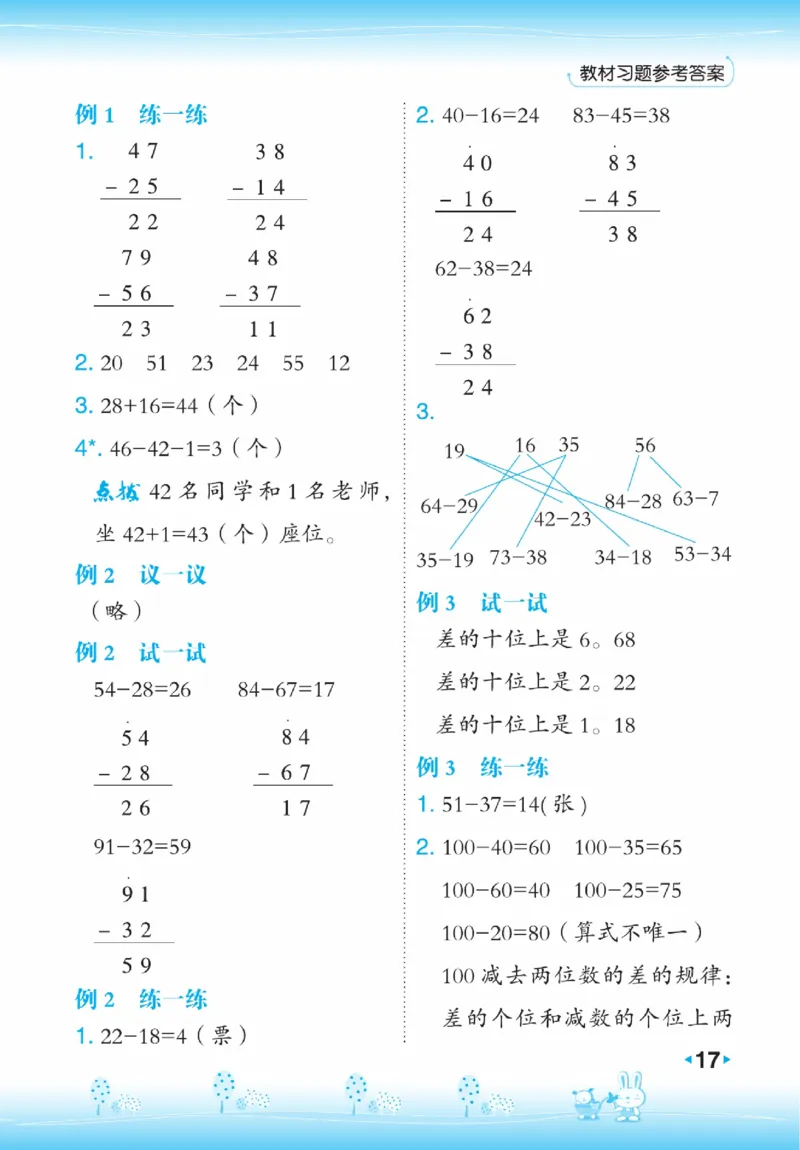 教材习题参考答案
例 1 练一练
1. 4 7 3 8
- 2 5 - 1 4
2 2 2 4
7 9 4 8
- 5 6 - 3 7
2 3 1 1
2. 20 51 23 24 55 12
3. 28+16=44（个）
4*. 46-42-1=3（个）
点拨 42 名同学和 1 名老师，
坐 42+1=43（个）座位。
例 2 议一议
（略）
例 2 试一试
54-28=26 84-67=17
5 4 8 4
- 2 8 - 6 7
2 6 1 7
91-32=59
9 1
- 3 2
5 9
例 2 练一练
1. 22-18=4（票）
2. 40-16=24 83-45=38
4 0 8 3
- 1 6 - 4 5
2 4 3 8
62-38=24
6 2
- 3 8
2 4
3.
19 16 35 56
64-29 42-23 84-28 63-7
35-19 73-38 34-18 53-34
例 3 试一试
差的十位上是 6。68
差的十位上是 2。22
差的十位上是 1。18
例 3 练一练
1. 51-37=14(张)
2. 100-40=60 100-35=65
100-60=40 100-25=75
100-20=80（算式不唯一）
100 减去两位数的差的规律：
差的个位和减数的个位上两
17